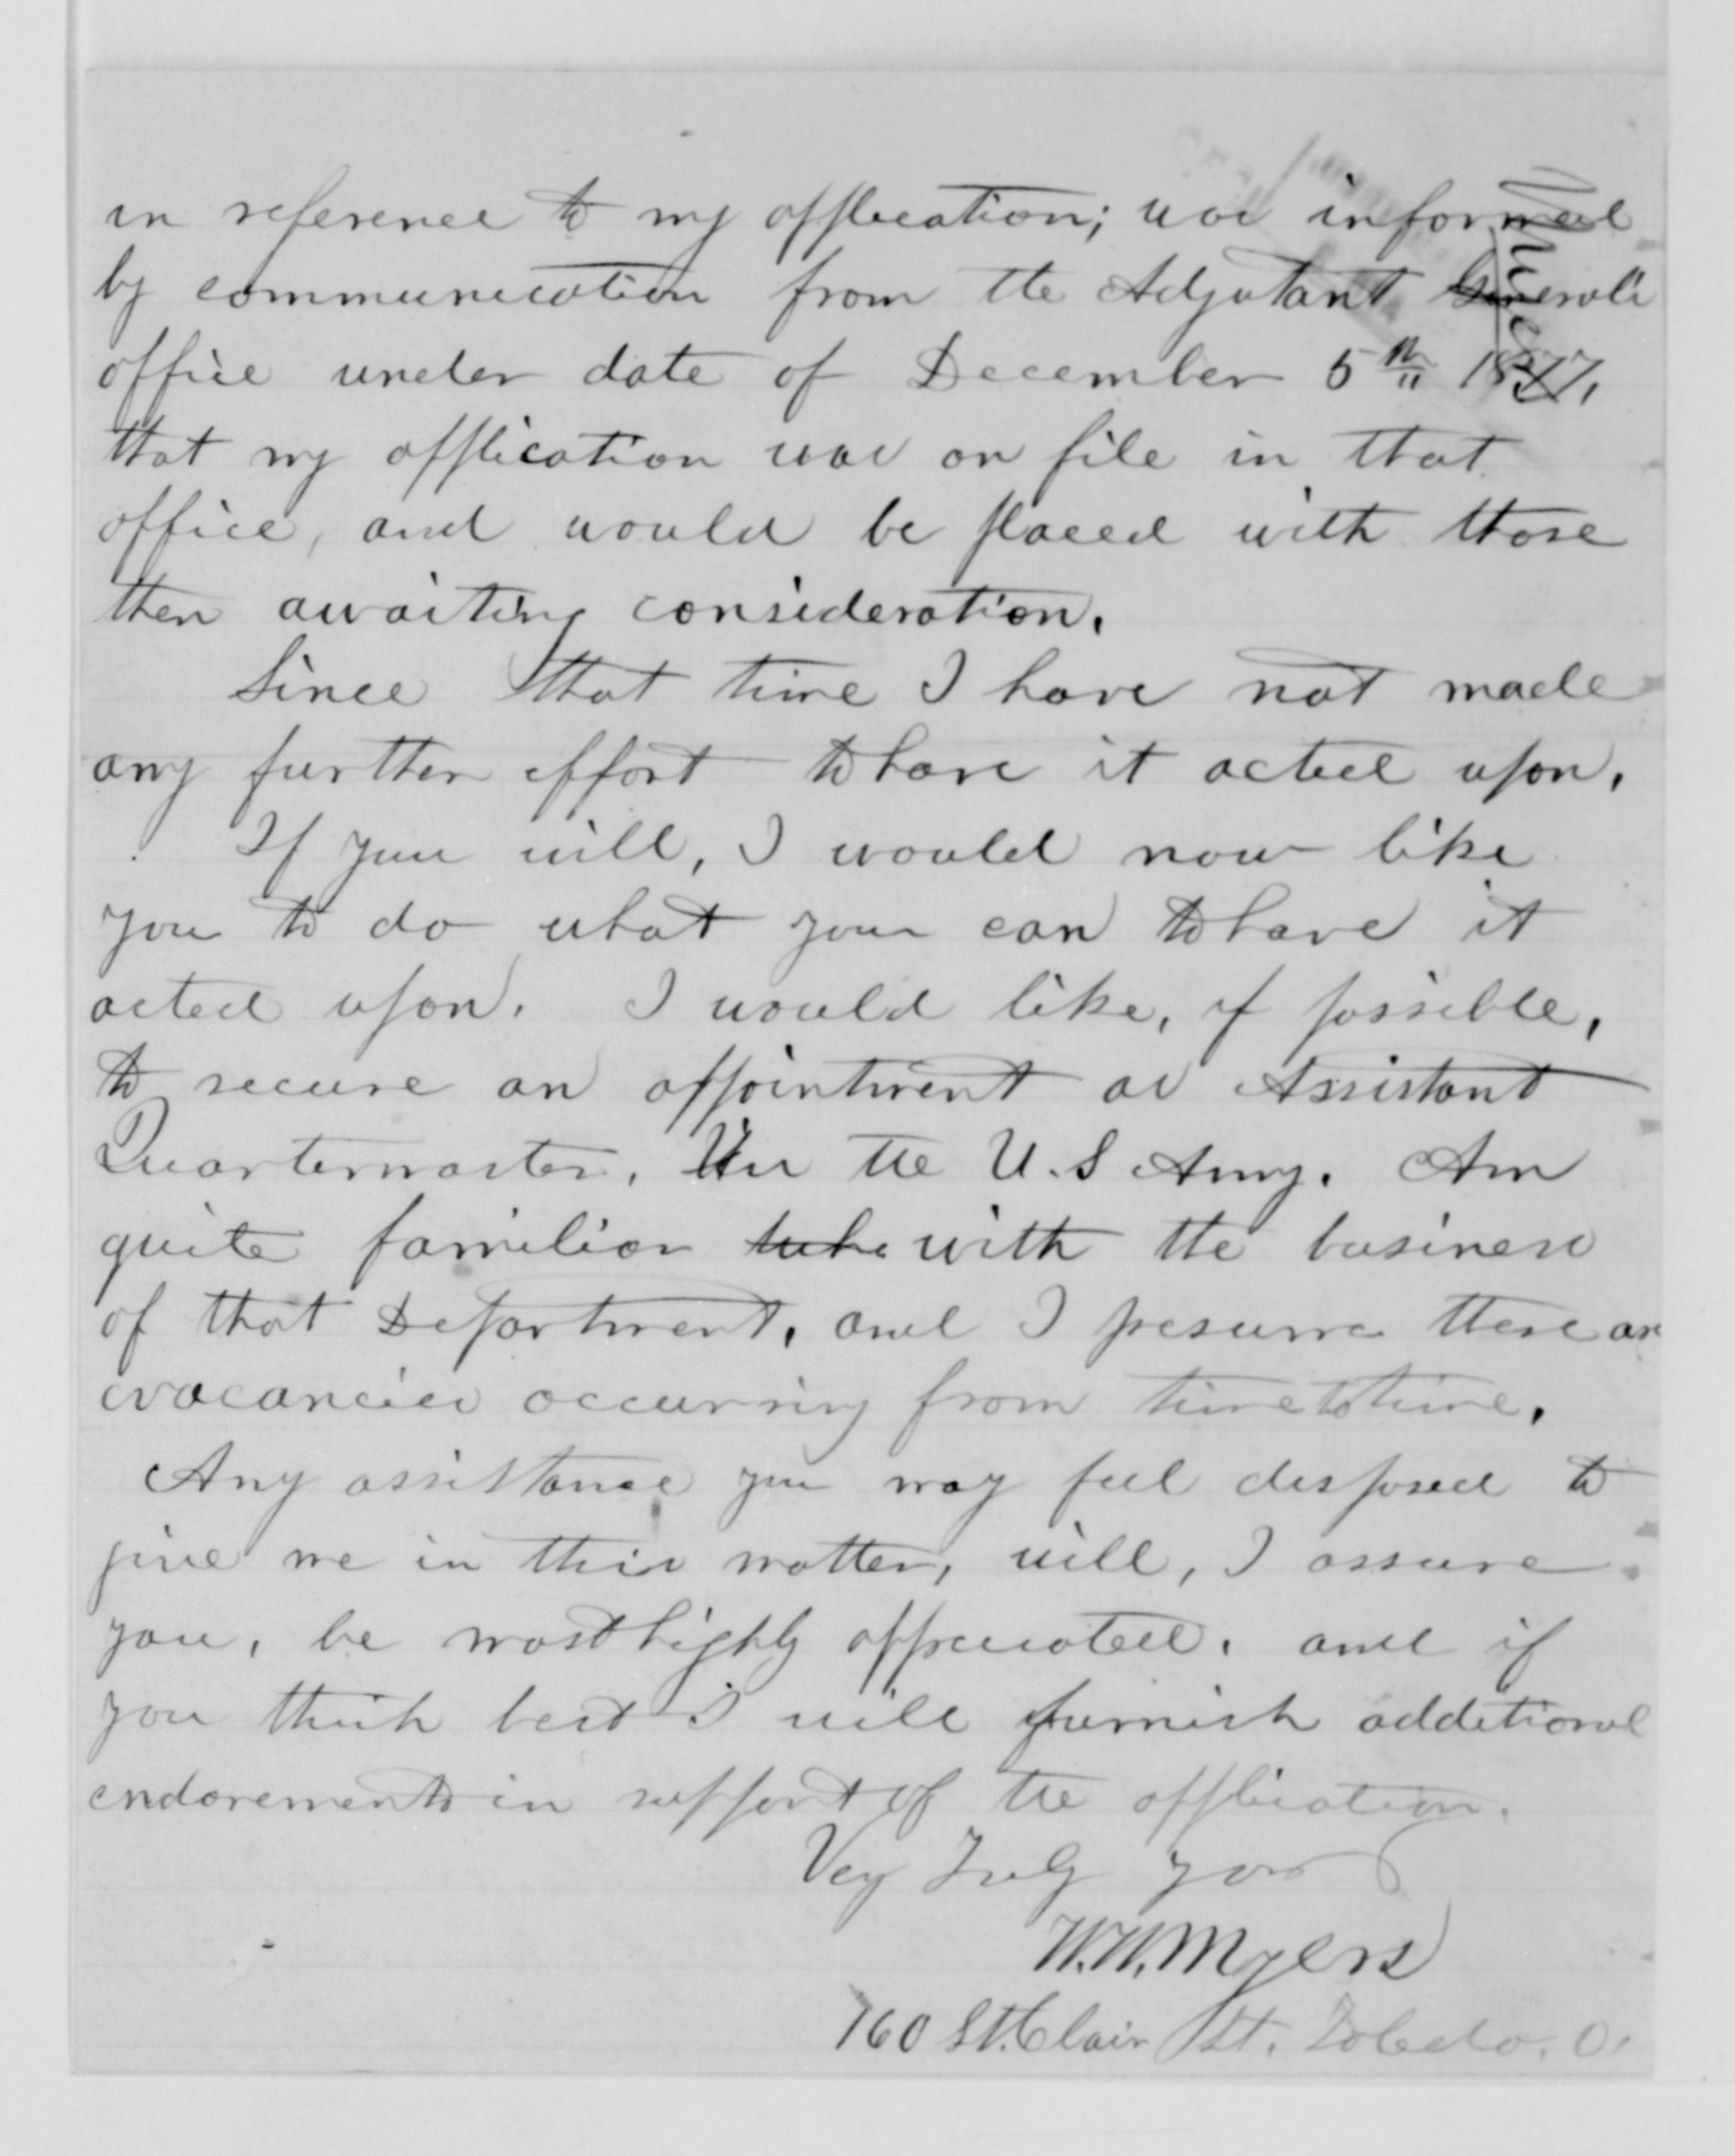 in reference to my application; was informed
by communication from the Adjutant Generals
office under date of December 5th 1877,
that my application was on file in that
office, and would be placed with those
then awaiting consideration.
Since that time I have not made
any further effort to have it acted upon.
If you will, I would now like
you to do what you can to have it
acted upon. I would like, if possible,
to secure an appointment as Assistant
Quartermaster, In the U.S Army. Am
quite familiar with the business
of that Department, and I presume there are
vacancies occurring from time to time.
Any assistance you may feel disposed to
give me in this matter, will, I assure
you, be most highly appreciated. and if
you think best I will furnish additional
endorements in support of the application.
Very Truly yours
W.H. Myers
160 St. Clair St. Toledo. O.